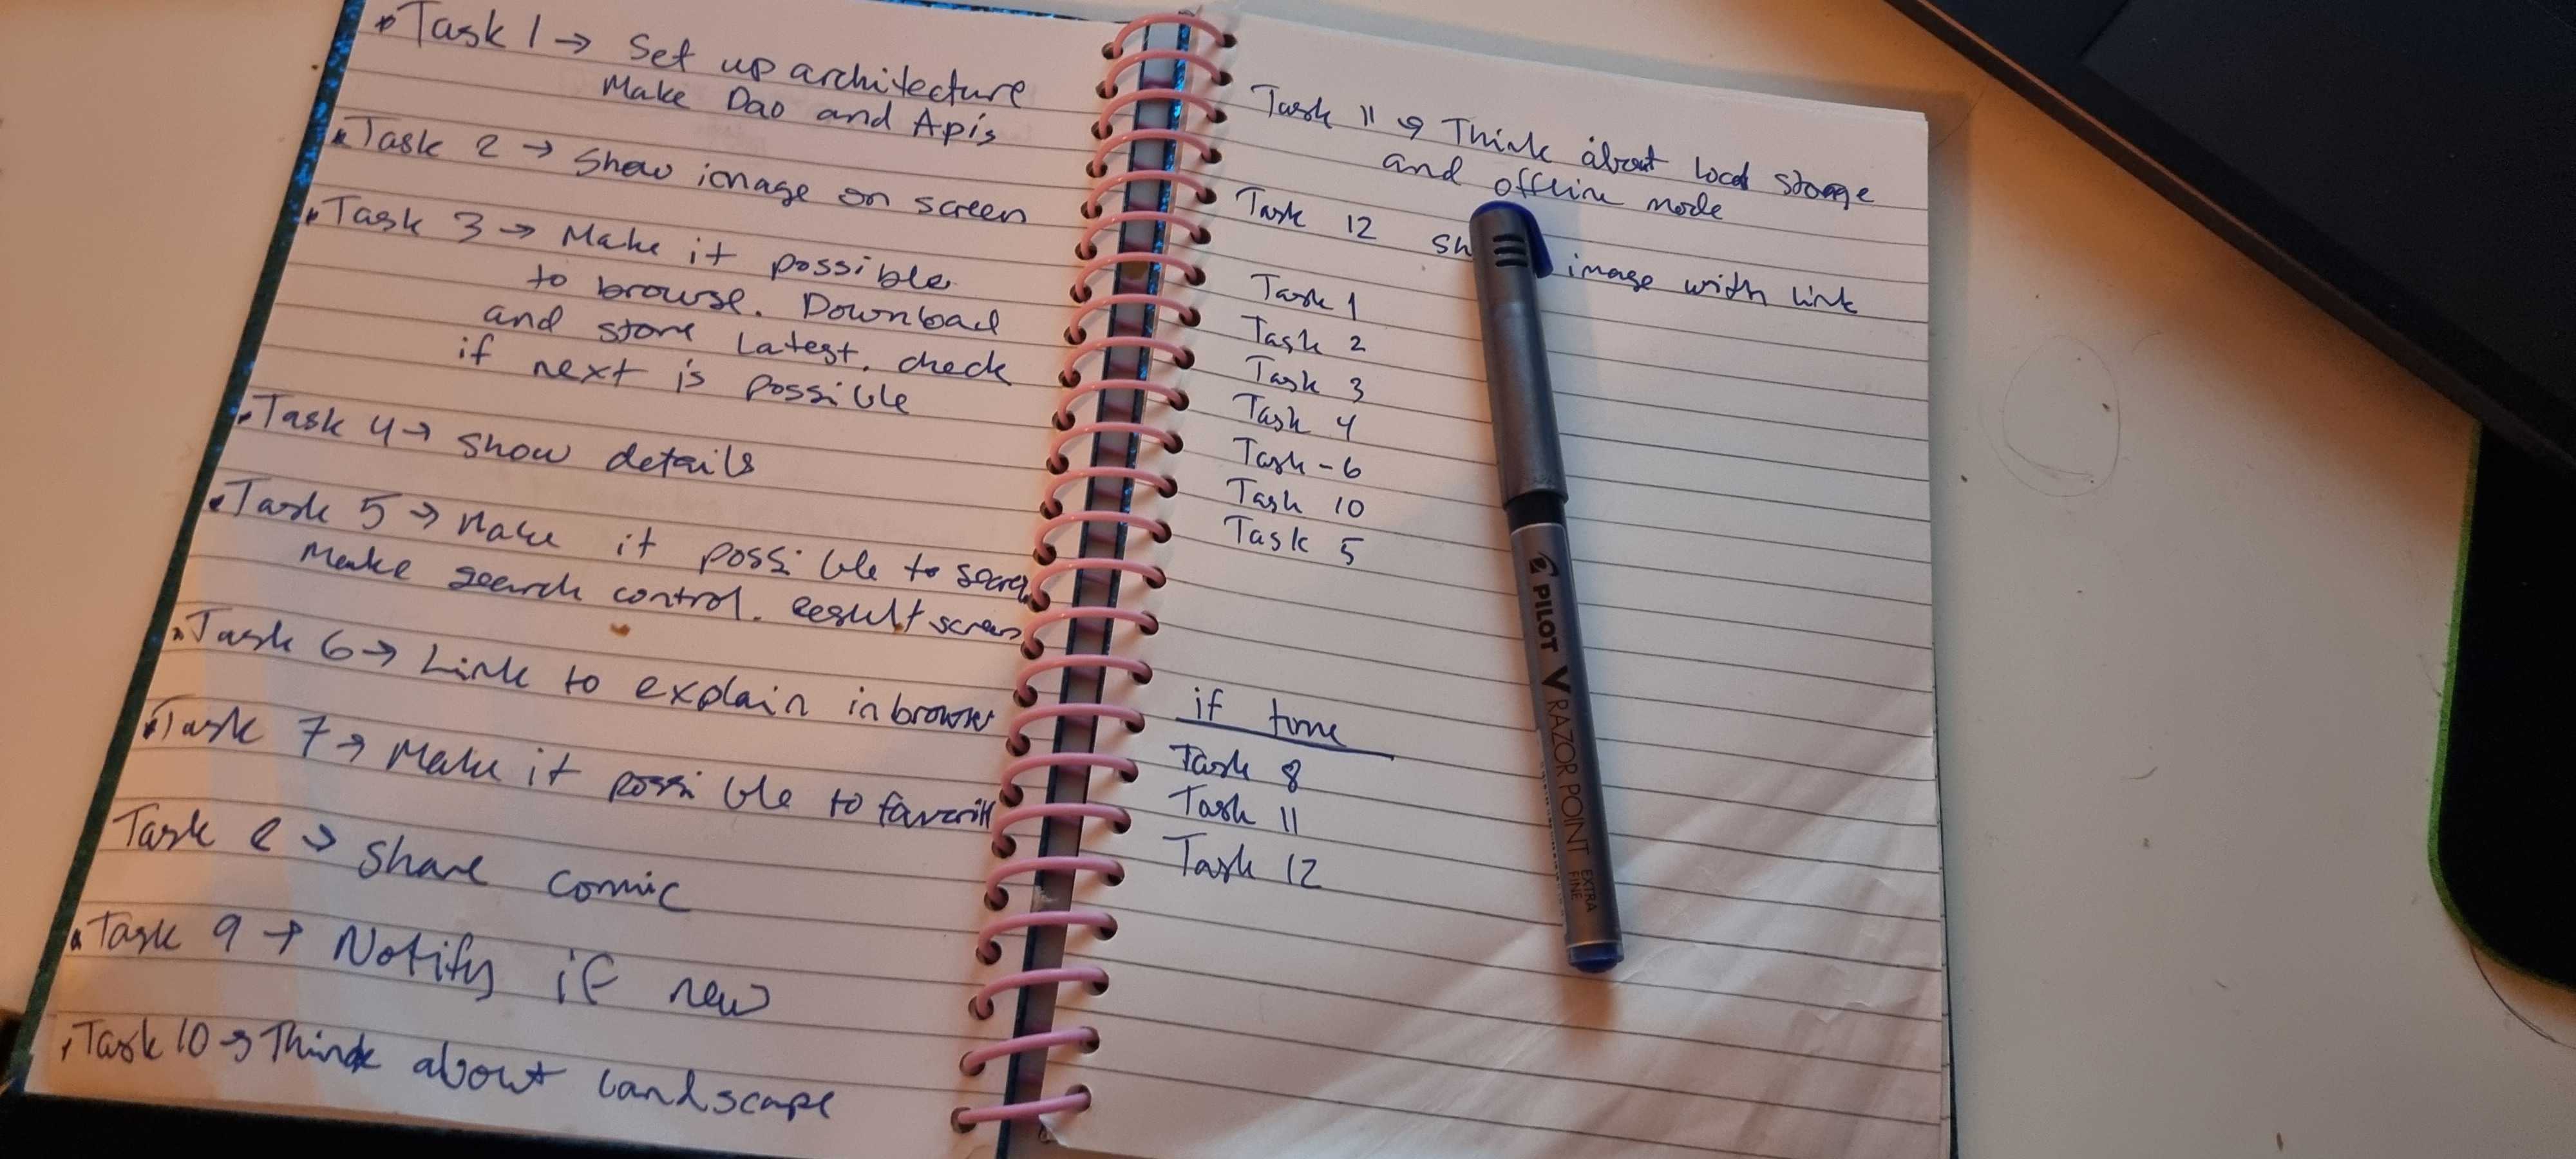 Task 1 → Set up architecture
Make Dao and Apis
Task 2 → Show image on screen
Task 3 → Make it possible
to browse. Download
and store latest. check
if next is possible
Task 4 → show details
Task 5 → Make it possible to
Make search control. Result screen
Task 6 → Link to explain in browser
Task 7 → Make it possible to
Task 8 → share comic
Task 9 → Notify if new
Task 10 → Think about landscape
Task 11 → Think about local storage
and offline mode
Task 12 image with link
Task 1
Task 2
Task 3
Task 4
Task - 6
Task 10
Task 5
if time
Task 8
Task 11
Task 12
PILOT V RAZOR POINT EXTRA FINE